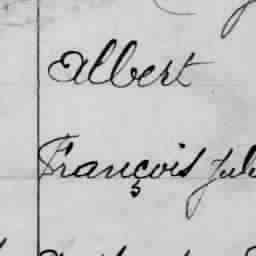 Albert
François